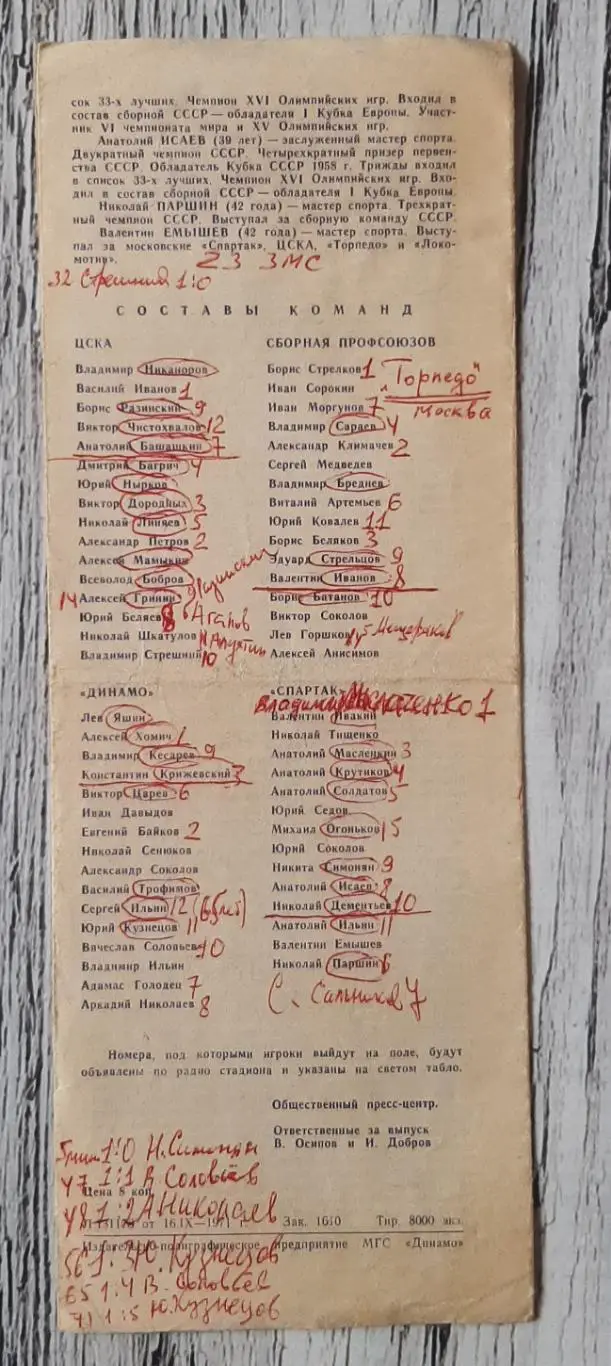 сок 33-х лучших. Чемпион XVI Олимпийских игр. Входил в
состав сборной СССР — обладателя I Кубка Европы. Участ-
ник VI чемпионата мира и XV Олимпийских игр.
Анатолий ИСАЕВ (39 лет) — заслуженный мастер спорта.
Двукратный чемпион СССР. Четырехкратный призер первен-
ства СССР. Обладатель Кубка СССР 1958 г. Трижды входил
в список 33-х лучших. Чемпион XVI Олимпийских игр. Вхо-
дил в состав сборной СССР — обладателя I Кубка Европы.
Николай ПАРШИН (42 года) — мастер спорта. Трехкрат-
ный чемпион СССР. Выступал за сборную команду СССР.
Валентин ЕМЫШЕВ (42 года) — мастер спорта. Высту-
пал за московские «Спартак», ЦСКА, «Торпедо» и «Локо-
мотив».
23 ЗМС
32 Стрешний 1:0
СОСТАВЫ КОМАНД
ЦСКА
Владимир Никаноров
Василий Иванов 1
Борис Разинский 9
Виктор Чистохвалов 12
Анатолий Башашкин 7
Дмитрий Багрич 4
Юрий Нырков
Виктор Дородных 3
Николай Линяев 5
Александр Петров 2
Алексей Мамыкин
Всеволод Бобров
14 Алексей Гринин 9 Разинский
Юрий Беляев 8 6 Агапов
Николай Шкатулов 11 Апухтин
Владимир Стрешний 10
СБОРНАЯ ПРОФСОЮЗОВ
Борис Стрелков 1
Иван Сорокин „Торпедо"
Иван Моргунов 7 Москва
Владимир Сараев 4
Александр Климачев 2
Сергей Медведев
Владимир Бреднев
Виталий Артемьев 6
Юрий Ковалев 11
Борис Беляков 3
Эдуард Стрельцов 9
Валентин Иванов 8
Борис Батанов 10
Виктор Соколов
Лев Горшков 5 Мещеряков
Алексей Анисимов
«ДИНАМО»
Лев Яшин
Алексей Хомич 1
Владимир Кесарев 9
Константин Крижевский 3
Виктор Царев 6
Иван Давыдов
Евгений Байков 2
Николай Сенюков
Александр Соколов
Василий Трофимов
Сергей Ильин 12 (65 лет)
Юрий Кузнецов 11
Вячеслав Соловьев 10
Владимир Ильин
Адамас Голодец 7
Аркадий Николаев 8
«СПАРТАК»
Владимир 1
Валентин Ивакин
Николай Тищенко
Анатолий Масленкин 3
Анатолий Крутиков 4
Анатолий Солдатов 5
Юрий Седов
Михаил Огоньков 15
Юрий Соколов
Никита Симонян 9
Анатолий Исаев 8
Николай Дементьев 10
Анатолий Ильин 11
Валентин Емышев
Николай Паршин 6
С. Сальников 7
Номера, под которыми игроки выйдут на поле, будут
объявлены по радио стадиона и указаны на светом табло.
Общественный пресс-центр.
Ответственные за выпуск
В. Осипов и И. Добров
5 мин 1:0 Н. Симонян
47 1:1 В Соловьев
Цена 8 коп.
48 1:2 А Николаев
от 16.IX—1971 г. Зак. 1610 Тир. 8000 экз.
Издательско-полиграфическое предприятие МГС «Динамо»
56 1:3 Ю. Кузнецов
65 1:4 В. Соловьев
71 1:5 Ю. Кузнецов